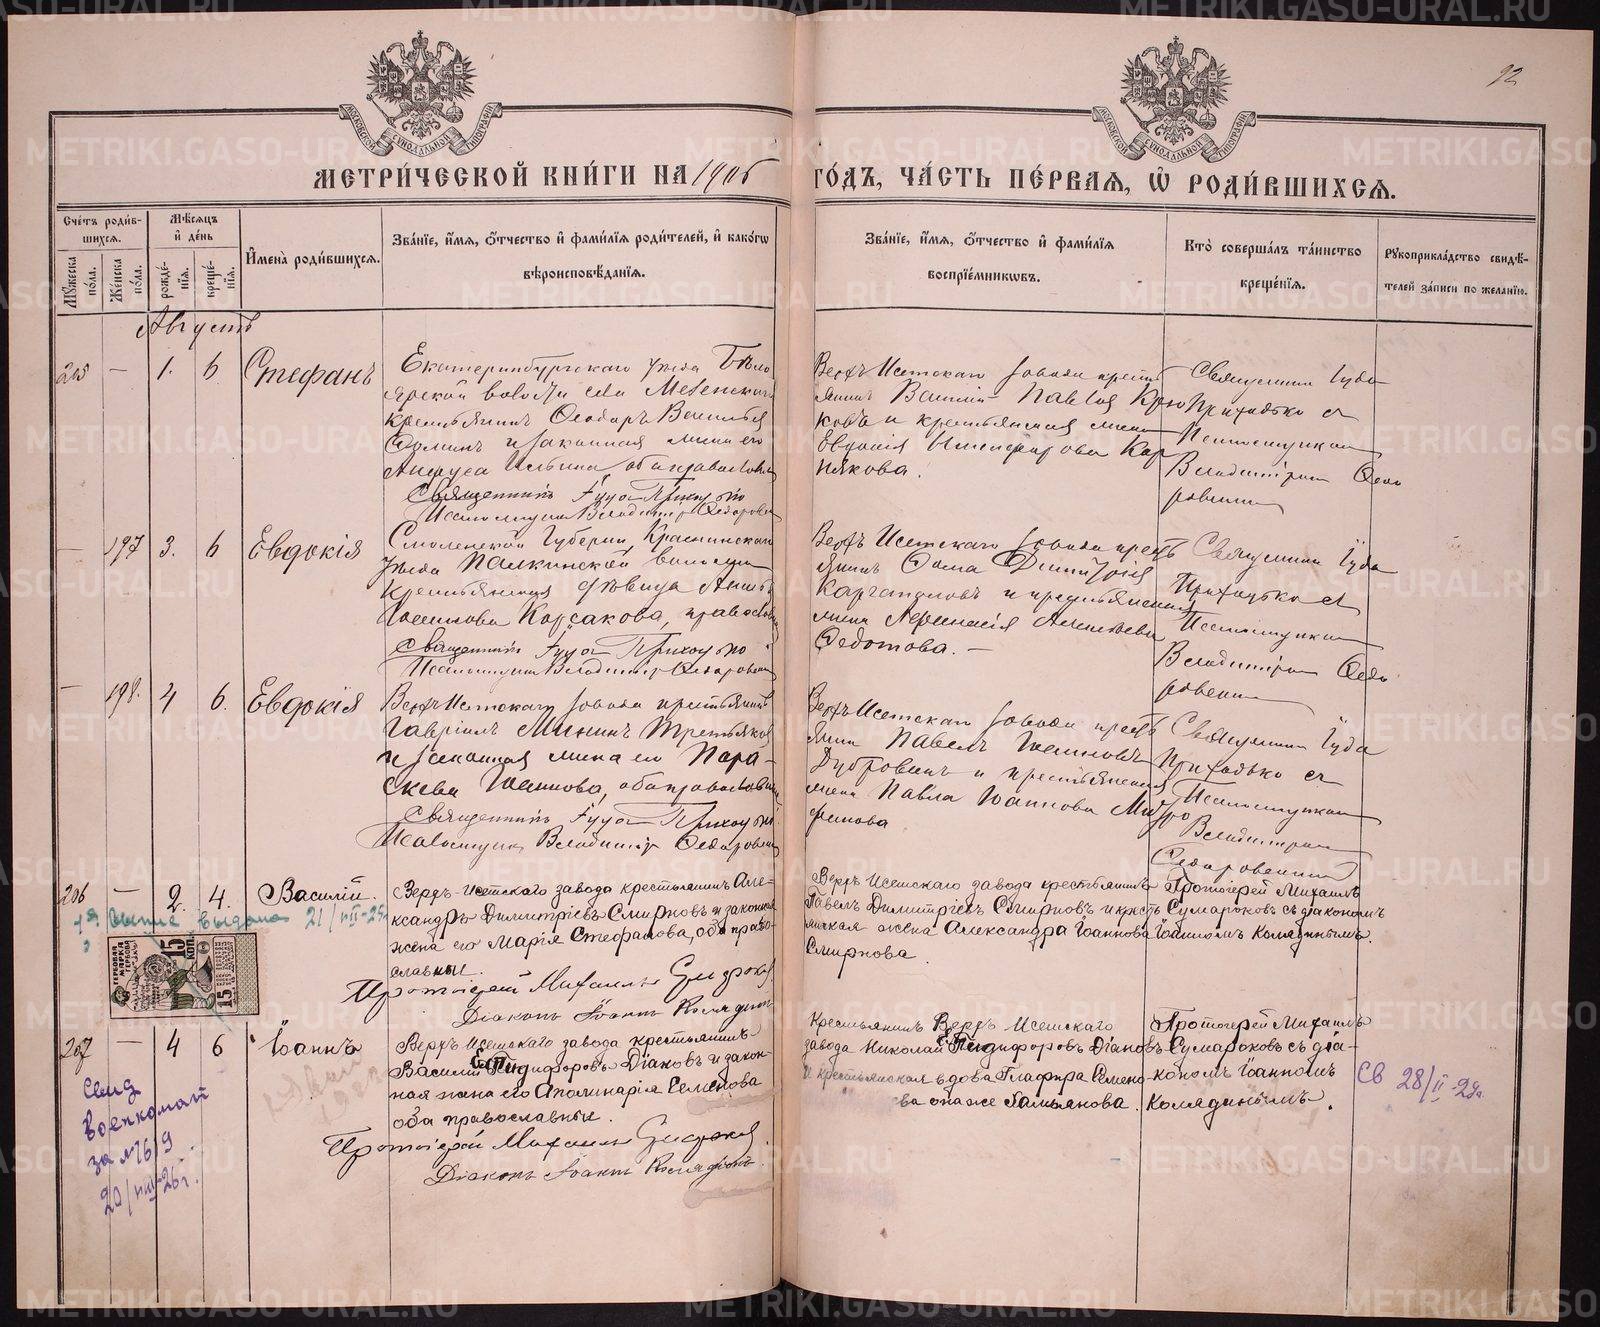 92
МЕТРИ́ЧЕСКОЙ КНИ́ГИ НА 1906 ГО́ДЪ, ЧА́СТЬ ПЕ́РВАЯ, Ѡ РОДИ́ВШИХСЯ.
Сче́тъ роди́в-
шихся.
Мѣ́сяцъ
и де́нь
Му́жеска
по́ла.
Же́нска
по́ла.
рожде́-
нїя.
креще́-
нїя.
И́мена роди́вшихся.
Зва́нїе, и́мя, ѻ́тчество и фами́лїя роди́телей, и како́гѡ
вѣроисповѣ́данїя.
Зва́нїе, и́мя, ѻ́тчество и фами́лїя
воспрїе́мниковъ.
Кто̀ соверша́лъ та́инство
креще́нїя.
Рукоприкла́дство свидѣ́-
телей за́писи по жела́нїю.
Августъ
205 — 1. 6 Стефанъ
Екатеринбургскаго уѣзда Бѣло
ярской волости села Мезенскаго
крестьянинъ Ѳеодоръ Васильев
и законная жена его
Ильина, оба православны
Священникъ Іуда Приходько
Псаломщикъ Владиміръ Ѳедоровъ
Верхъ Исетскаго завода кресть
янинъ Василій Павловъ Крю
ковъ и крестьянская жена
Евдокія Никифорова Кор
някова.
Священник Іуда
Приходько съ
Псаломщикомъ
Владиміромъ Ѳедо
— 197 3. 6 Евдокія
Смоленской Губерніи, Краснинскаго
уѣзда Палкинской волости
крестьянская дѣвица Анна
Корсакова, православн
Священникъ Іуда Приходько
Псаломщикъ Владиміръ Ѳедоровъ
Верхъ Исетскаго завода кресть
янинъ Ѳома Димитріев
и крестьянская
жена
Ѳедотова. —
Священник Іуда
Приходько съ
Псаломщикомъ
Владиміромъ Ѳедо
— 198. 4 6. Евдокія
Верхъ Исетскаго завода крестьянинъ
Гавріилъ Мининъ Третьяков
и законная жена его Пара-
скева Іоаннова, оба православны
Священникъ Іуда Приходько
Псаломщикъ Владиміръ Ѳедоровъ
Верхъ Исетскаго завода кресть
янин Павелъ Іоанновъ
Дубровинъ и крестьянская
жена Павла Іоаннова Митро
фанова
Священник Іуда
Приходько съ
Псаломщикомъ
Владиміромъ
206 — 2. 4. Василій.
Верхъ-Исетскаго завода крестьянинъ Але-
ксандръ Димитріевъ Смирновъ и законная
жена его Марія Стефанова, оба право-
славны.
Протоіерей Михаилъ Сумароков
Діаконъ Іоаннъ Колядинъ
Верхъ Исетскаго завода крестьянинъ
Павелъ Димитріевъ Смирновъ и кресть
янская жена Александра Іоаннова
Смирнова.
Протоіерей Михаилъ
Сумароковъ съ діакономъ
Іоанномъ Колядинымъ.
выдана 21/VIII-25г
ГЕРБОВАЯ
МАРКА
15
КОП.
207 — 4 6 Іоаннъ
Верхъ Исетскаго завода крестьянинъ
Василій Діаковъ и закон-
ная жена его Аполинарія Семенова
оба православны.
Протоіерей Михаилъ Сумароков
Діаконъ Іоаннъ Колядинъ.
Крестьянинъ Верхъ Исетскаго
завода Николай Діановъ
и крестьянская вдова Глафира Семено
ва она же Гамьянова.
Протогерей Михаилъ
Сумароковъ съ діа-
кономъ Іоанномъ
Колядинымъ.
СВ 28/II-29г.
Свид
Военкомат
за №1619
20/VIII-26г.